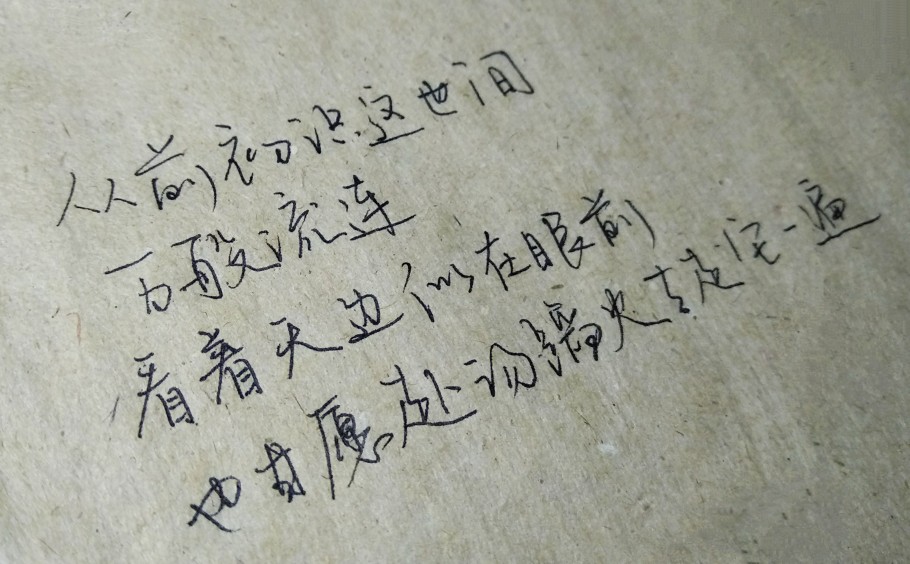 从前初识这世间
万般流连
看着天边似在眼前
也甘愿赴汤蹈火去走它一遍